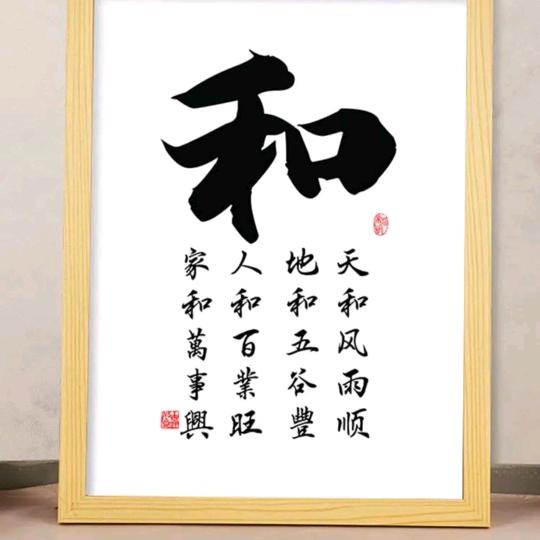 和
天和风雨顺
地和五谷豐
人和百業旺
家和萬事興